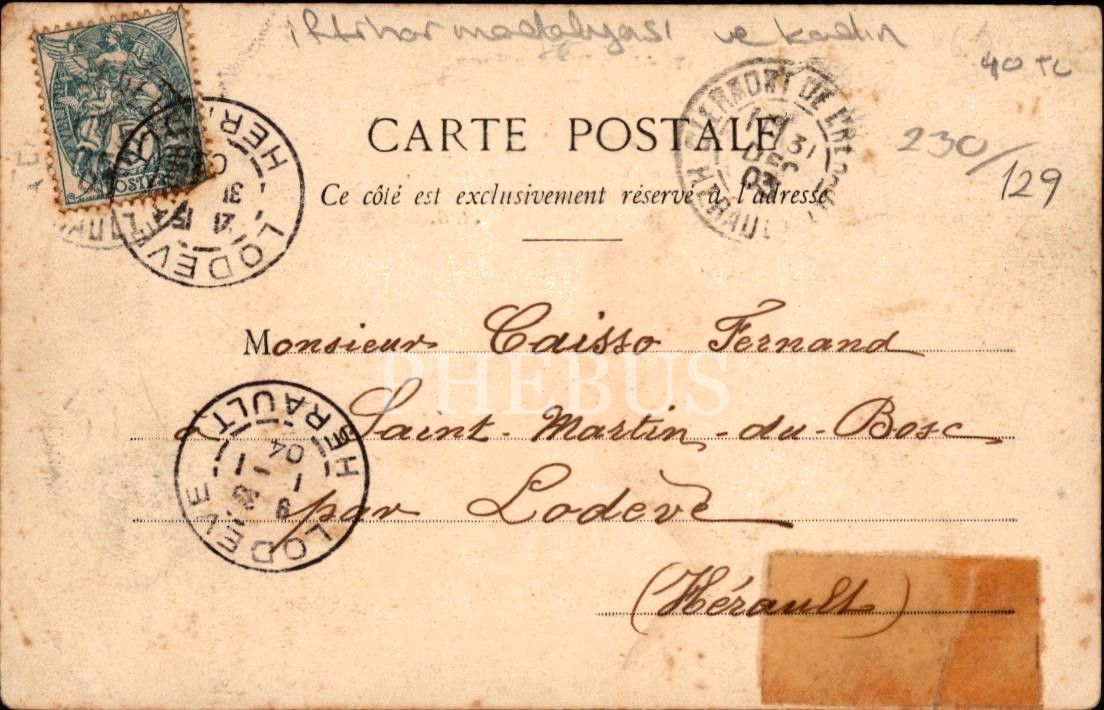 iftihar madalyası ve kadın
40 TL
CARTE POSTALE
230/129
Ce côté est exclusivement réservé à l'adresse
CLERMONT DE L'HERAULT
31
DEC
03
HERAULT
LODEVE HER
31
POSTES
Monsieur Caisso Fernand
PHEBUS
à Saint-Martin-du-Bosc
par Lodève
(Hérault)
LODEVE HERAULT
9 30
1 - 1
04